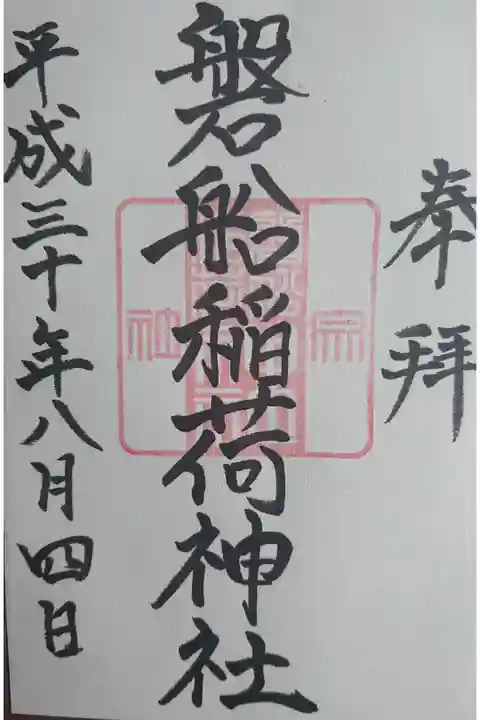 奉拝
磐船稲荷神社
平成三十年八月四日
宗
社